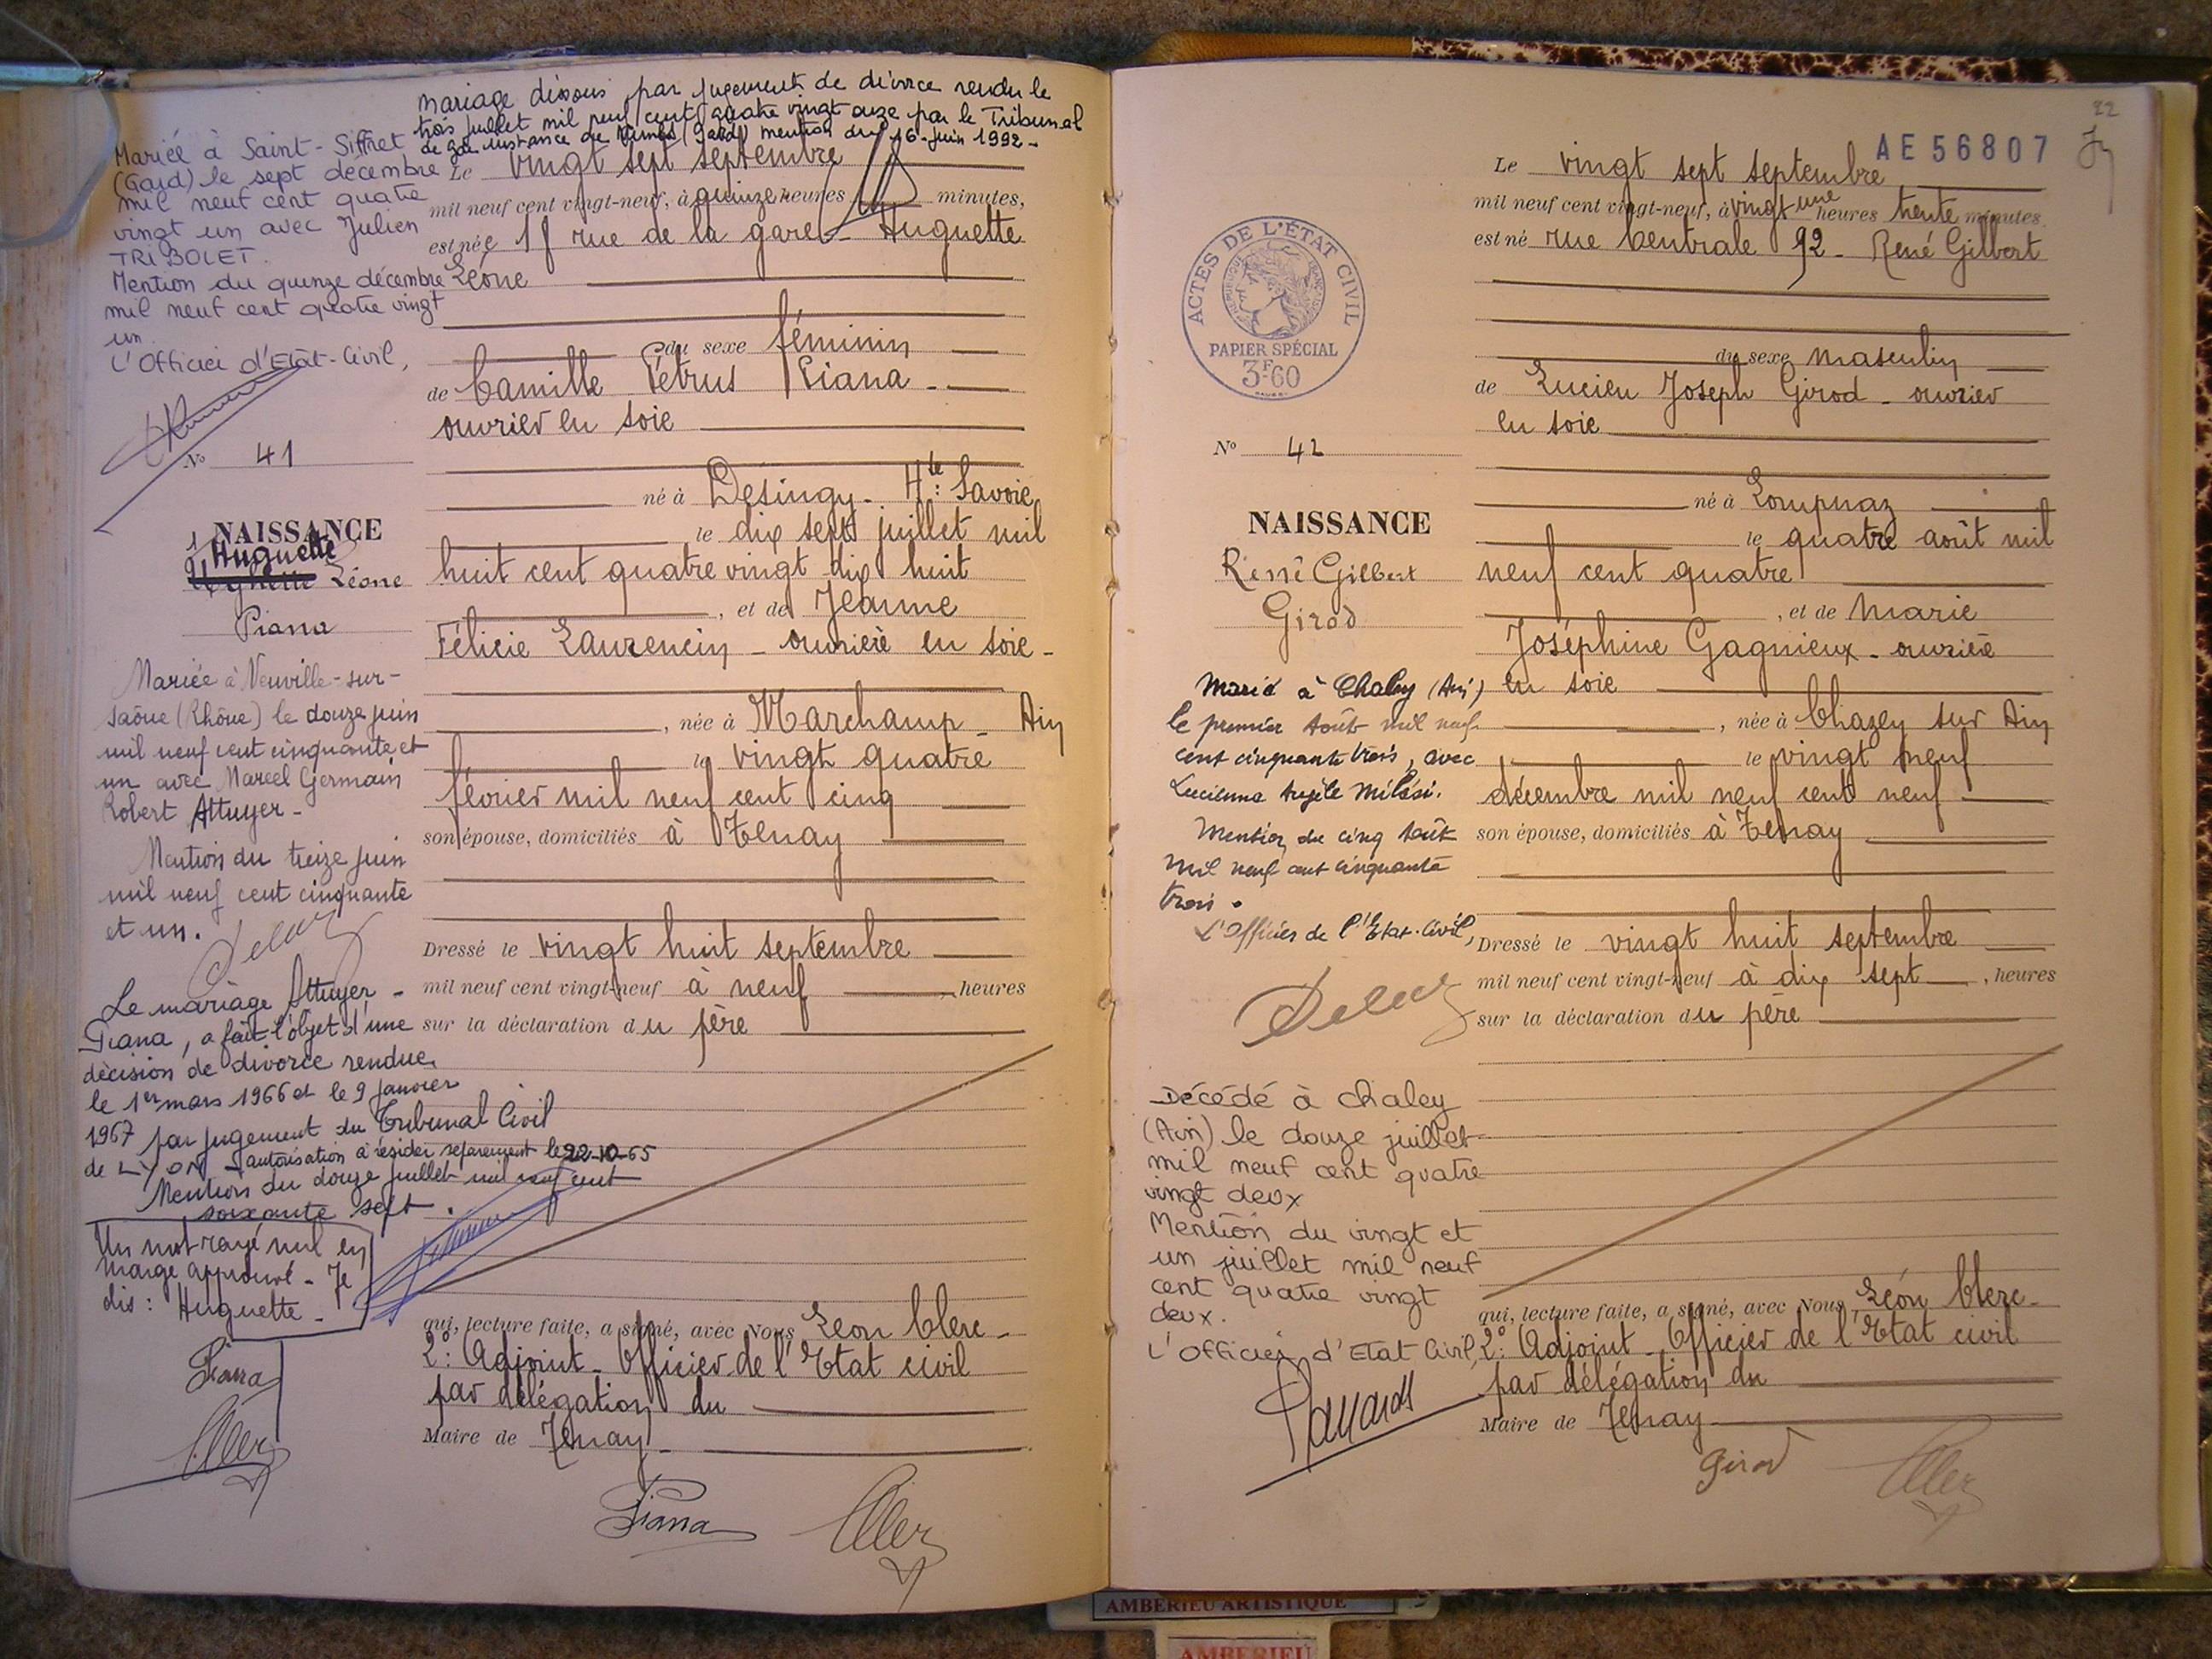 Mariage dissous par jugement de divorce rendu le
trois juillet mil neuf cent quatre vingt onze par le Tribunal
de gde instance de Nimes (Gard) mention du 16 juin 1992 -
Mariée à Saint-Siffret
(Gard) le sept décembre
mil neuf cent quatre
vingt un avec Julien
TRIBOLET.
Mention du quinze décembre
mil neuf cent quatre vingt
un.
L'Officier d'Etat-Civil,
No 41
NAISSANCE
Huguette
Léone
Piana
Mariée à Neuville-sur-
Saône (Rhône) le douze juin
mil neuf cent cinquante et
un avec Marcel Germain
Robert Attuyer -
Mention du treize juin
mil neuf cent cinquante
et un.
Le mariage Attuyer -
Piana, a fait l'objet d'une
décision de divorce rendue
le 1er mars 1966 et le 9 janvier
1967 par jugement du Tribunal Civil
de LYON - autorisation à résider séparément le 22-10-65
Mention du douze juillet mil neuf cent
soixante sept.
Un mot rayé nul en
marge approuvé - Je
dis : Huguette -
Piana
Le vingt sept septembre
mil neuf cent vingt-neuf, à quinze heures minutes,
est née rue de la gare - Huguette
Léone
du sexe féminin
de Camille Pétrus Piana -
ouvrier en soie
né à Desingy - Hte Savoie
le dix sept juillet mil
huit cent quatre vingt dix huit
, et de Jeanne
Félicie Laurencin - ouvrière en soie -
, née à Marchamp - Ain
le vingt quatre
février mil neuf cent cinq
son épouse, domiciliés à Tenay
Dressé le vingt huit septembre
mil neuf cent vingt-neuf à neuf , heures
sur la déclaration du père
qui, lecture faite, a signé, avec Nous Léon Clerc -
2e Adjoint - Officier de l'Etat civil
par délégation du
Maire de Tenay -
Piana
22
AE 56807
ACTES DE L'ÉTAT CIVIL
RÉPUBLIQUE FRANÇAISE
PAPIER SPÉCIAL
3F60
No 42
NAISSANCE
René Gilbert
Girod
Marié à Chaley (Ain)
le premier Août mil neuf
cent cinquante trois, avec
Lucienne Angèle Milési.
Mention du cinq Août
mil neuf cent cinquante
trois.
L'Officier de l'Etat-Civil,
Décédé à Chaley
(Ain) le douze juillet
mil neuf cent quatre
vingt deux
Mention du vingt et
un juillet mil neuf
cent quatre vingt
deux.
L'Officier d'Etat Civil,
Le vingt sept septembre
mil neuf cent vingt-neuf, à vingt une heures trente minutes
est né rue Centrale 92 - René Gilbert
du sexe masculin
de Lucien Joseph Girod - ouvrier
en soie
né à Lompnaz
le quatre août mil
neuf cent quatre
, et de Marie
Joséphine Gagnieux - ouvrière
en soie
, née à Chazey sur Ain
le vingt neuf
décembre mil neuf cent neuf
son épouse, domiciliés à Tenay
Dressé le vingt huit septembre
mil neuf cent vingt-neuf à dix sept , heures
sur la déclaration du père
qui, lecture faite, a signé, avec Nous, Léon Clerc -
2e Adjoint - Officier de l'Etat civil
par délégation du
Maire de Tenay
Girod
AMBERIEU ARTISTIQUE
AMBERIEU